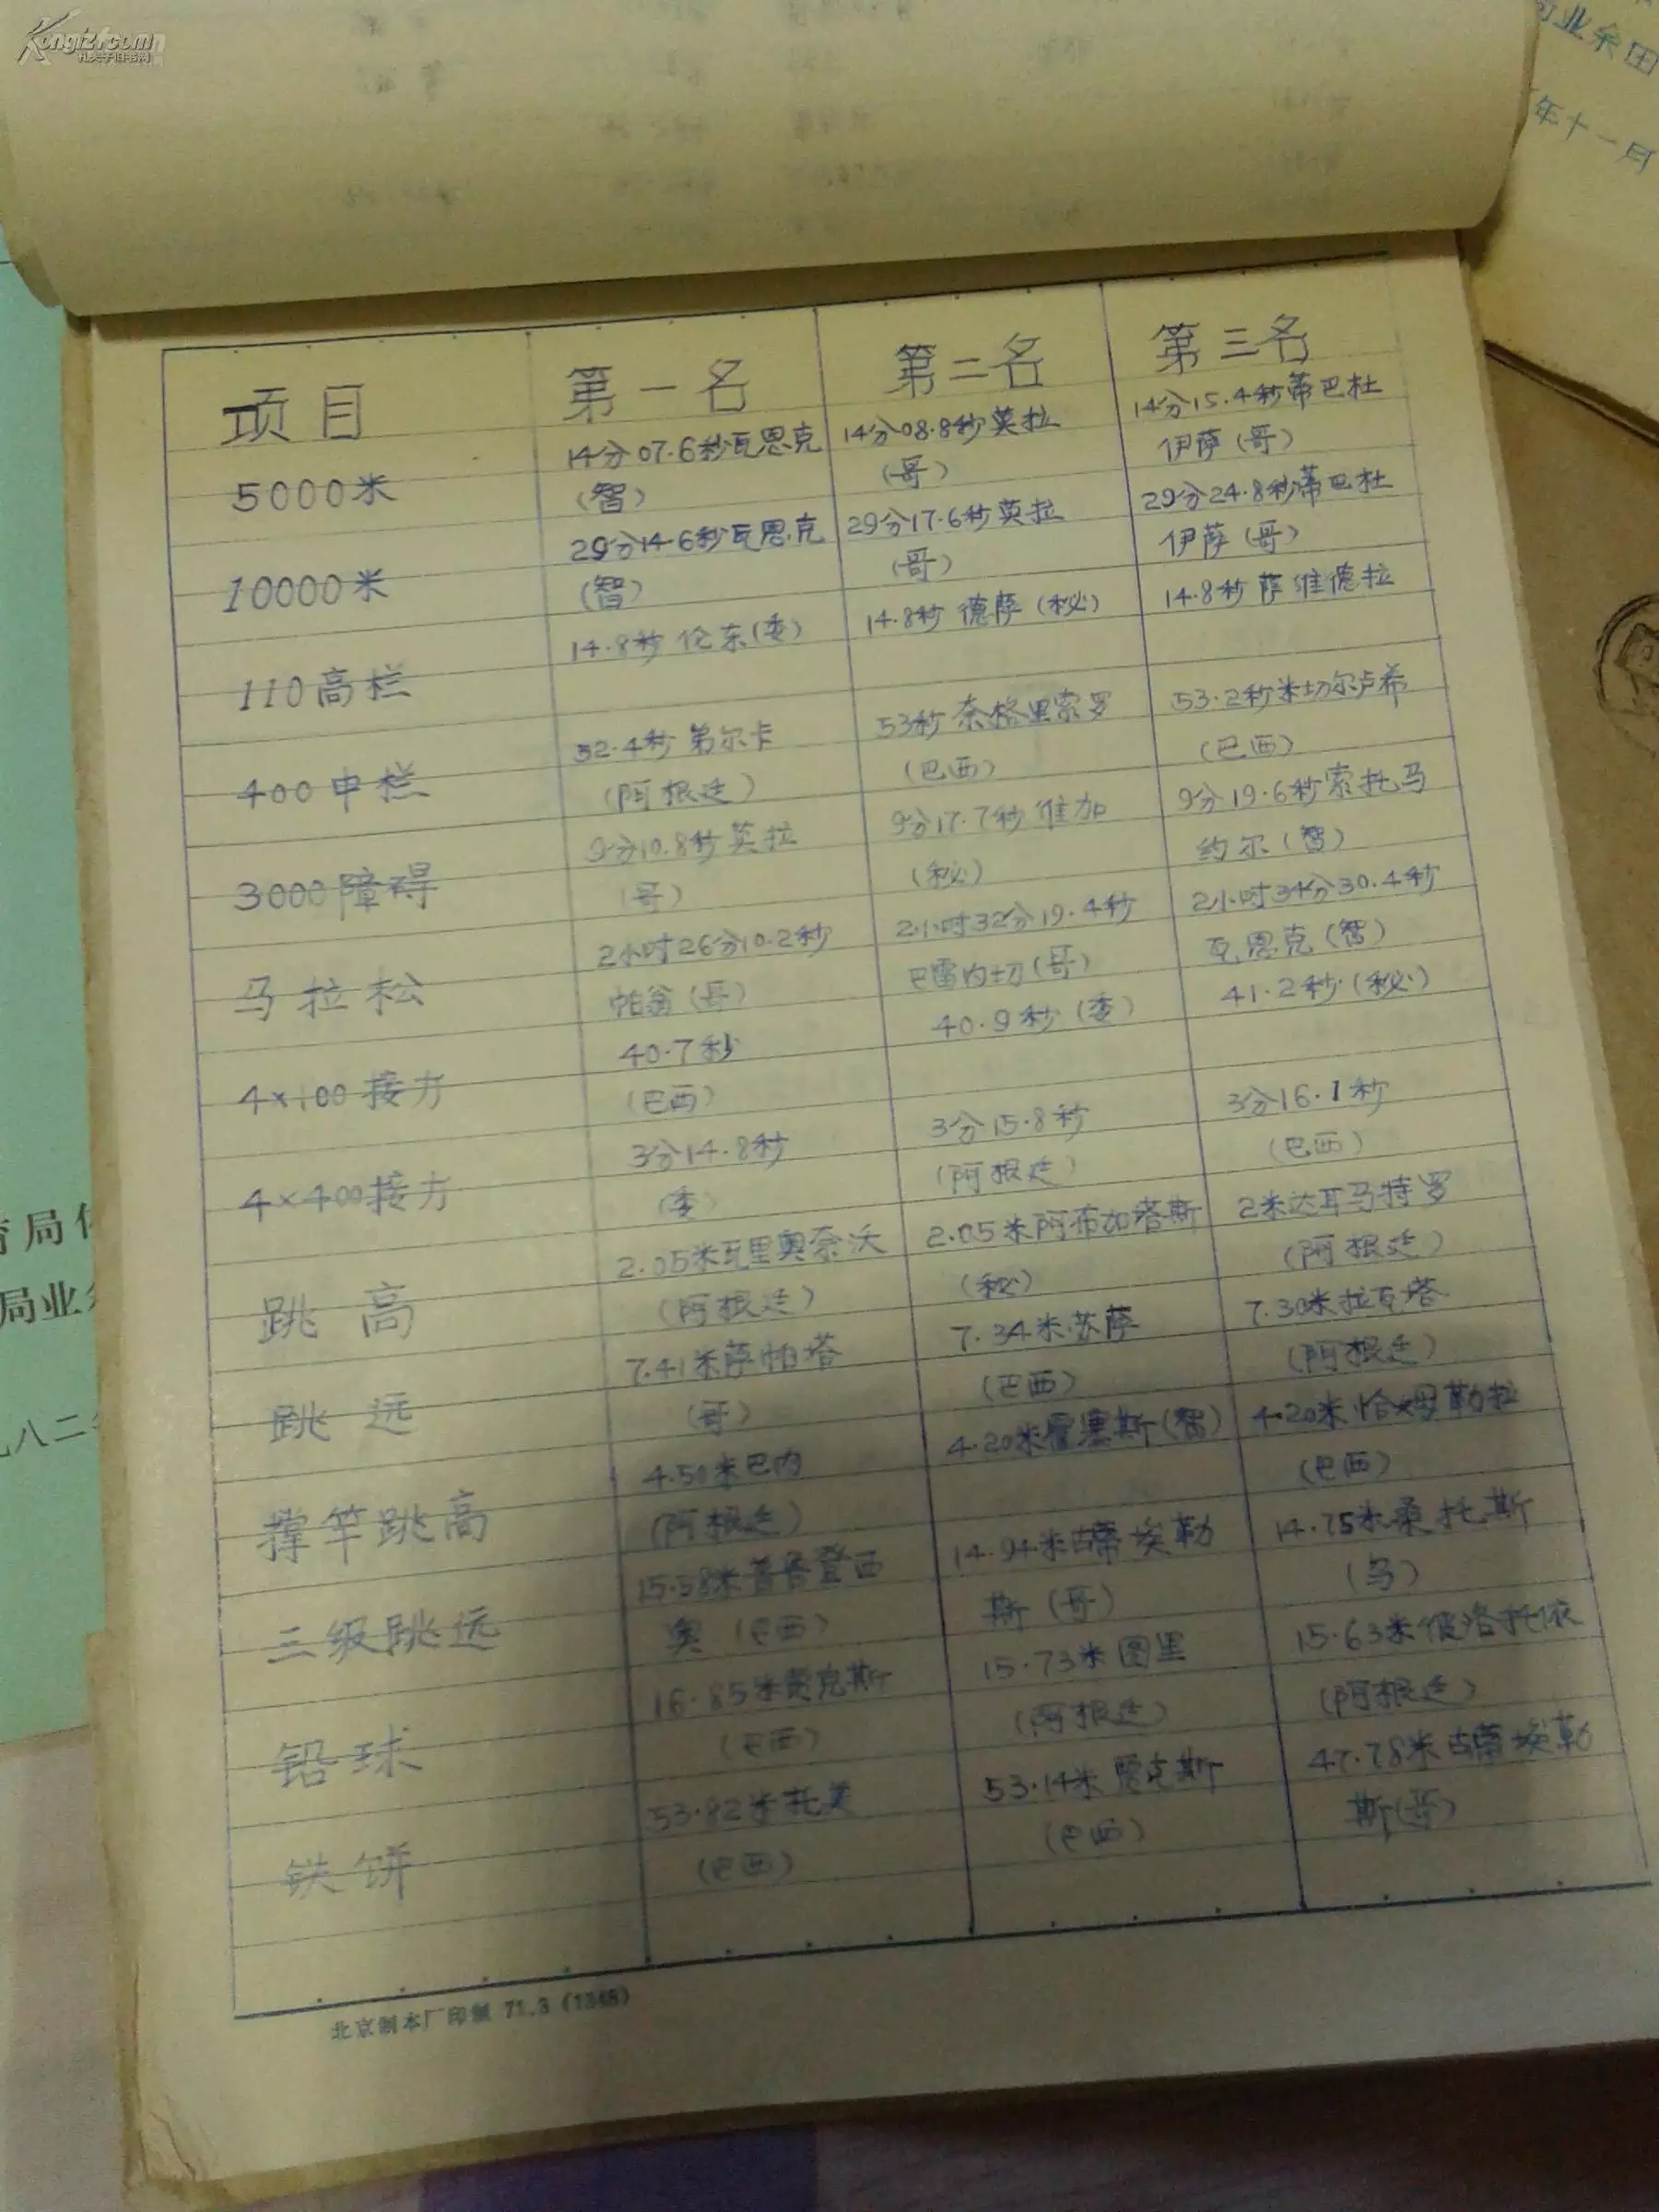 Kongfz.com
孔夫子旧书网
年十一月
局业
项目 第一名 第二名 第三名
5000米 14分07.6秒瓦恩克 14分08.8秒莫拉 14分15.4秒蒂巴杜
(智) (哥) 伊萨(哥)
10000米 29分14.6秒瓦恩克 29分17.6秒莫拉 29分24.8秒蒂巴杜
(智) (哥) 伊萨(哥)
110高栏 14.8秒伦东(委) 14.8秒德萨(秘) 14.8秒萨维德拉
400中栏 52.4秒第尔卡 53秒奈格里索罗 53.2秒米切尔卢希
(阿根廷) (巴西) (巴西)
3000障碍 9分10.8秒莫拉 9分17.7秒维加 9分19.6秒索托马
(哥) (秘) 约尔(智)
马拉松 2小时26分10.2秒 2小时32分19.4秒 2小时34分30.4秒
帕翁(哥) 巴雷内切(哥) 瓦恩克(智)
4×100接力 40.7秒 40.9秒(委) 41.2秒(秘)
(巴西)
4×400接力 3分14.8秒 3分15.8秒 3分16.1秒
(委) (阿根廷) (巴西)
跳高 2.05米瓦里奥奈沃 2.05米阿布加塔斯 2米达耳马特罗
(阿根廷) (秘) (阿根廷)
跳远 7.41米萨帕塔 7.34米苏萨 7.30米拉瓦塔
(哥) (巴西) (阿根廷)
撑竿跳高 4.50米巴内 4.20米雷塞斯(智) 4.20米恰姆勒拉
(阿根廷) (巴西)
三级跳远 15.58米普鲁登西 14.94米古蒂埃勒 14.75米桑托斯
奥(巴西) 斯(哥) (乌)
铅球 16.85米贾克斯 15.73米图里 15.63米彼洛托依
(巴西) (阿根廷) (阿根廷)
铁饼 53.82米托美 53.14米贾克斯 47.78米古蒂埃勒
(巴西) (巴西) 斯(哥)
北京制本厂印制 71.3 (1348)